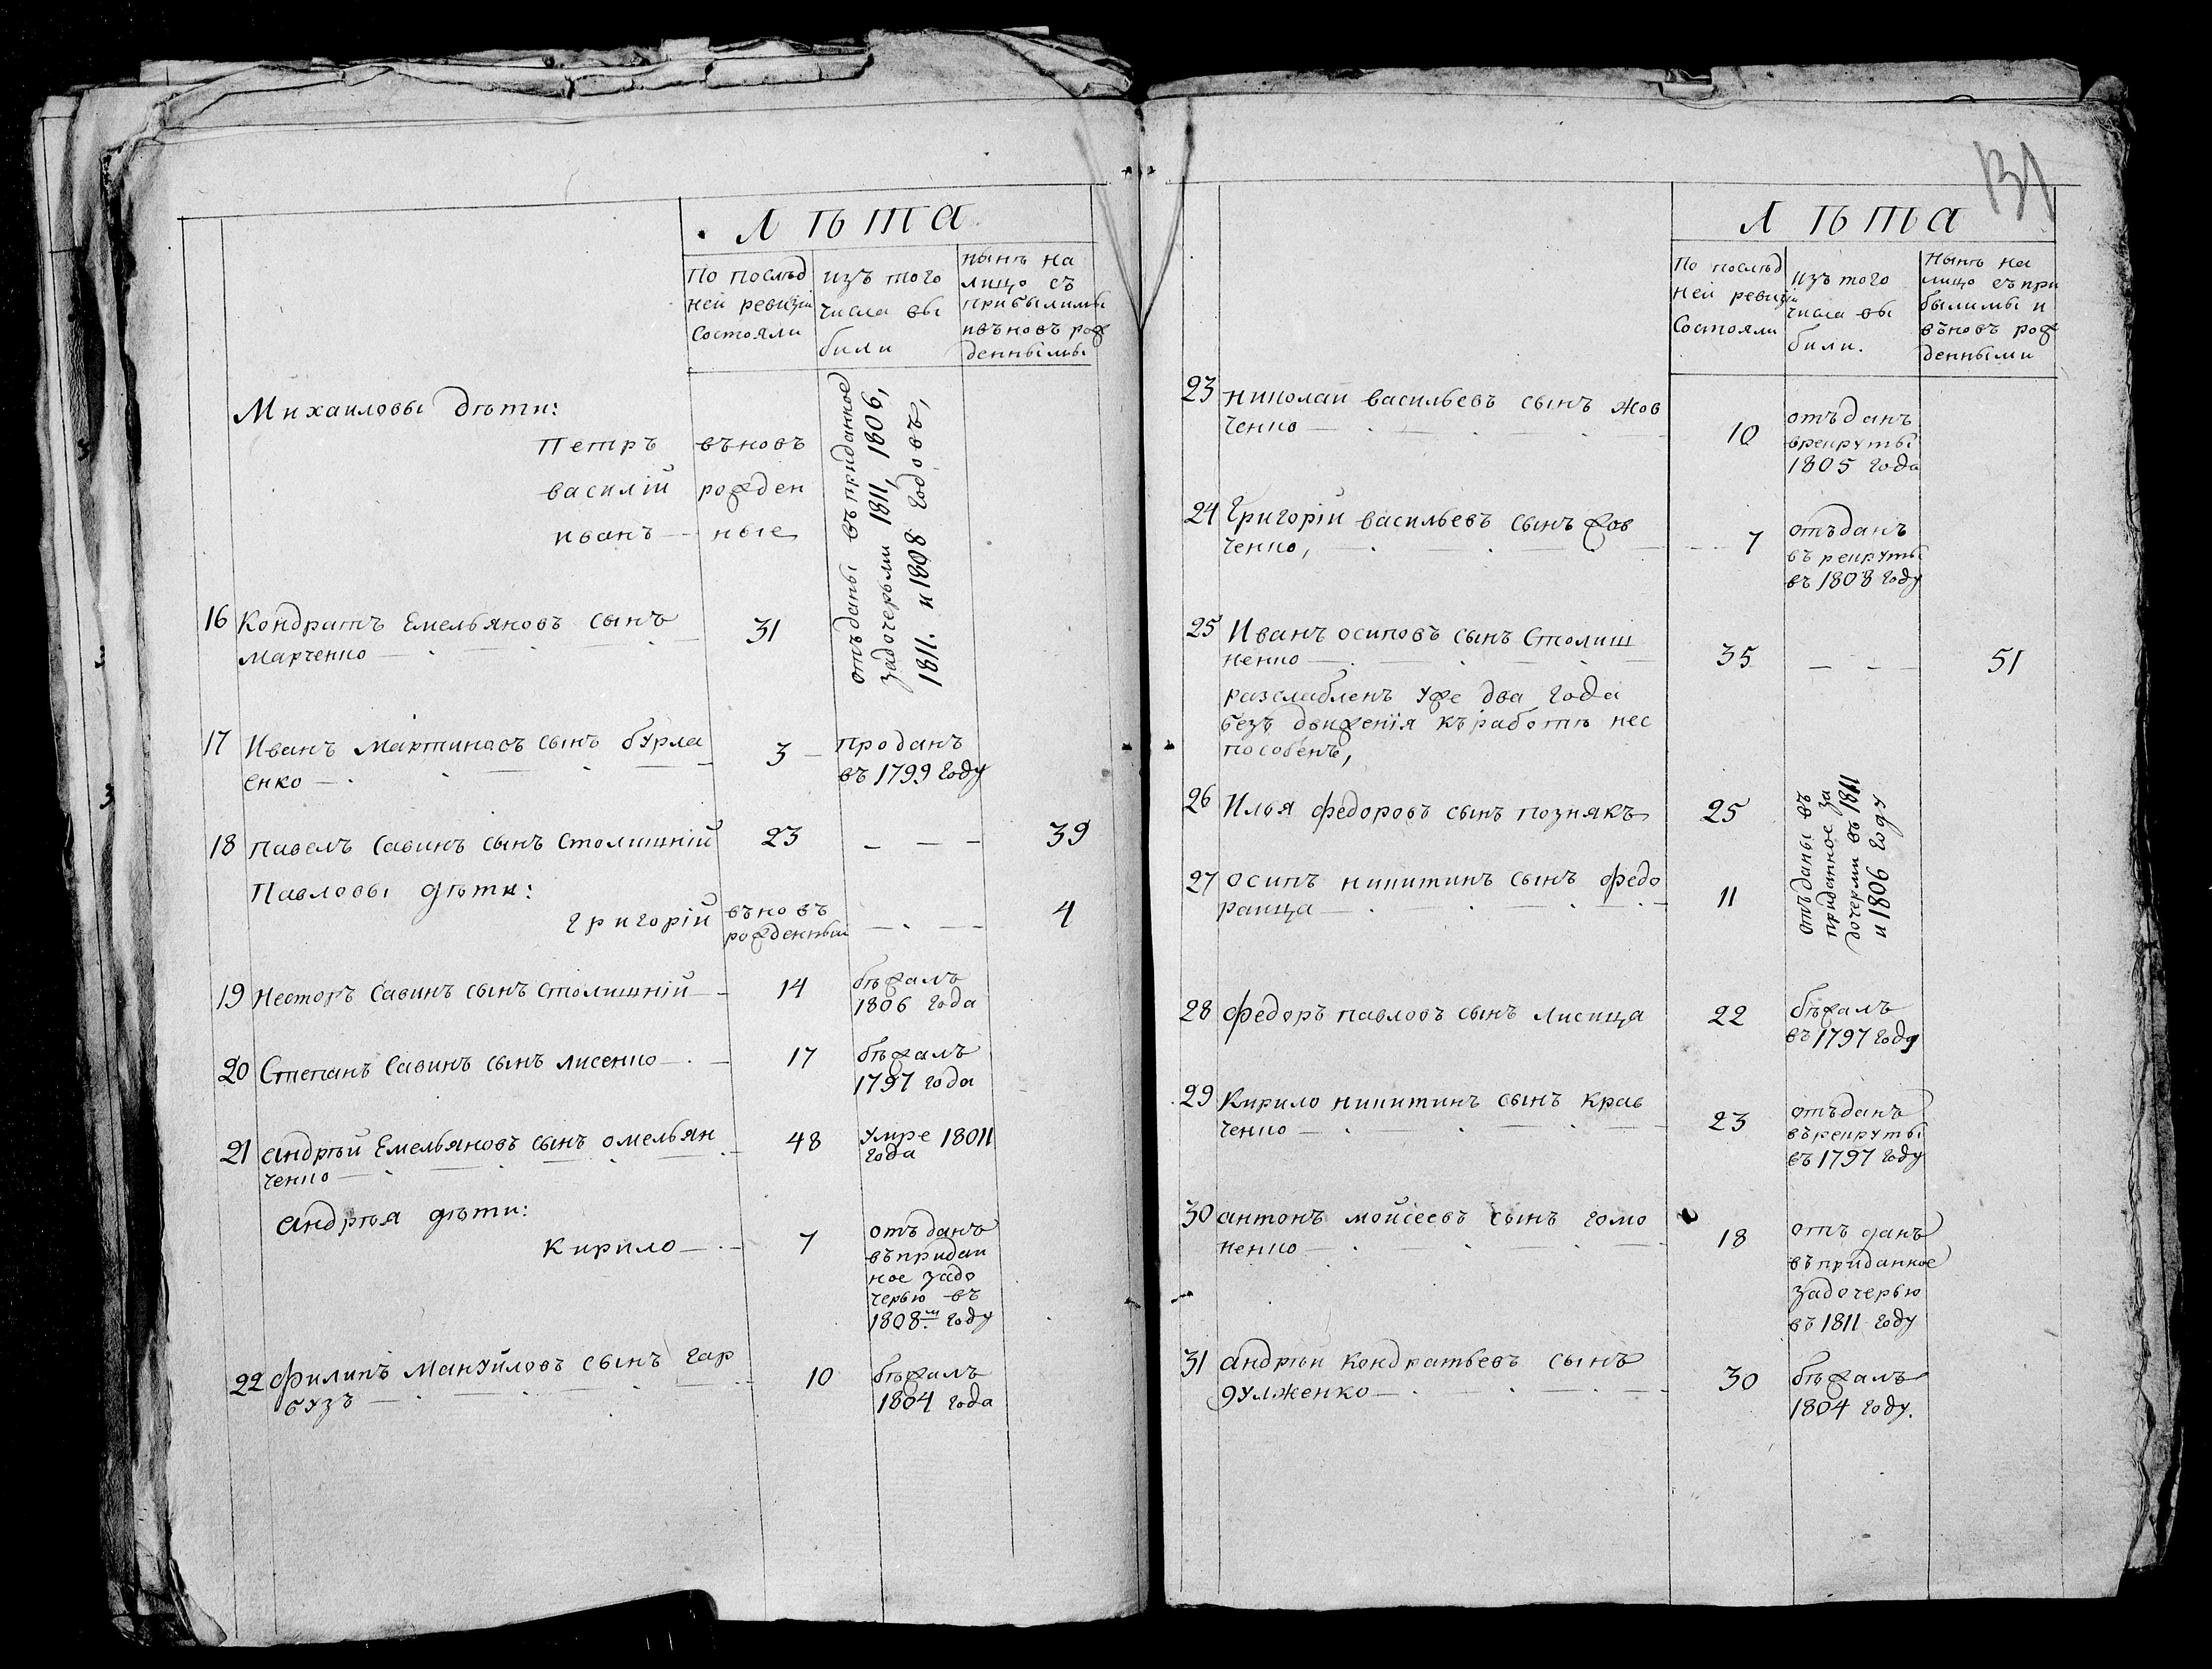 Лѣта
По послѣд
ней ревизіи
состояли
изъ того
числа вы
были
нынѣ на
лицо съ
прибылимы
ивъновъ рож
деннымы
Михаиловы дѣти:
Петръ въновъ
василій рожден
иванъ — ные
отъданы въ приданное
задочерьми 1811, 1806,
1811. и 1808 годовъ,
16 Кондратъ Емельяновъ сынъ 31
Марченко
17 Иванъ Мартиновъ сынъ бурла 3 проданъ
енко въ 1799 году
18 павелъ Савинъ сынъ Столишній 23 — — — 39
Павловы дѣти:
григорій въновъ 4
рожденный
19 Несторъ Савинъ сынъ Столишній 14 бѣжалъ
1806 года
20 Степанъ Савинъ сынъ лисенко 17 бѣжалъ
1797 года
21 андрѣй Емельяновъ сынъ омельян 48 умре 18011
ченко года
андрѣя дѣти:
Кирило 7 отъданъ
въпридан
ное задо
черью въ
1808м году
22 Филипъ Мануйловъ сынъ гар 10 бѣжалъ
бузъ 1804 года
131
Лѣта
По послѣд
ней ревизіи
Состояли
изъ того
числа вы
были.
Нынѣ на
лицо съ при
былимы и
въновъ рож
денными
23 николаи васильевъ сынъ жов 10 отъданъ
ченко врекруты
1805 года
24 Григорій васильевъ сынъ жов 7 отъданъ
ченко, въ рекруты
въ 1808 году
25 Иванъ осиповъ сынъ Столиш 35 — — — 51
ненко
разслабленъ уже два года
безъ движенія къработѣ нес
пособенъ,
26 Илья федоровъ сынъ познякъ 25
отъданы въ
приданное за
дочерми въ 1811
и 1806 году
27 осипъ никитинъ сынъ федо 11
ранца
28 федоръ павловъ сынъ лисица 22 бѣжалъ
въ 1797 году
29 Кирило никитинъ сынъ крав 23 отъданъ
ченко върекруты
въ 1797 году
30 антонъ мойсеевъ сынъ гомо 18 отъданъ
ненко въприданное
задочерью
въ 1811 году
31 андрѣй Кондратьевъ сынъ 30 бѣжалъ
дулженко 1804 году.